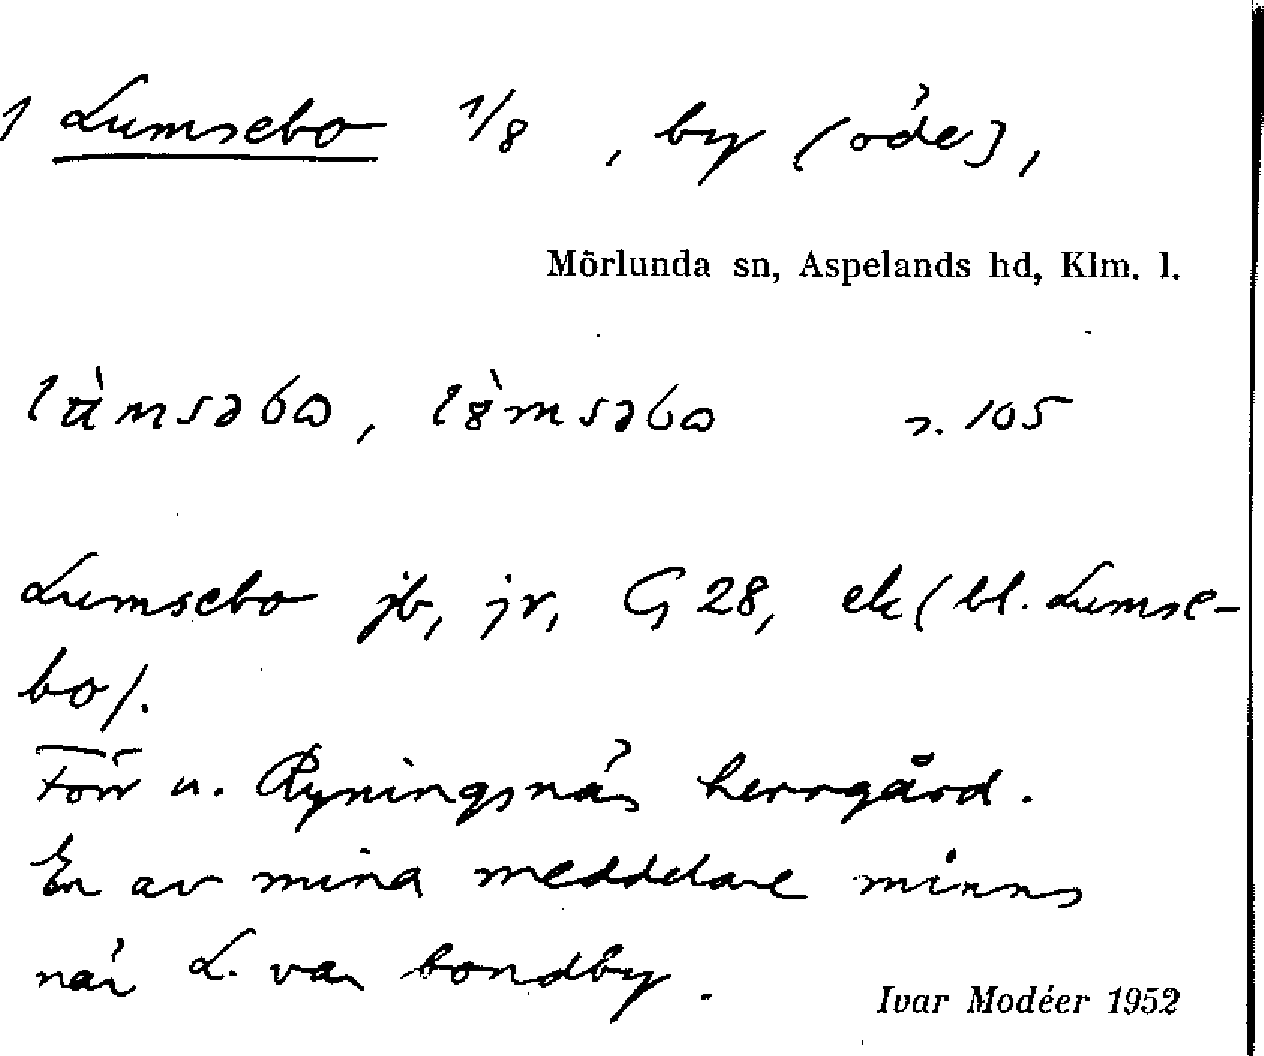 1 Lumsebo 1/8 , by (öde),
Mörlunda sn, Aspelands hd, Klm. l.
lùmsəbo, lømsəbo s. 105
Lumsebo jb, jr, G 28, ek (bl. Lumse-
bo).
Förr u. Ryningsnäs herrgård.
En av mina meddelare minns
när L. var bondby.
Ivar Modéer 1952